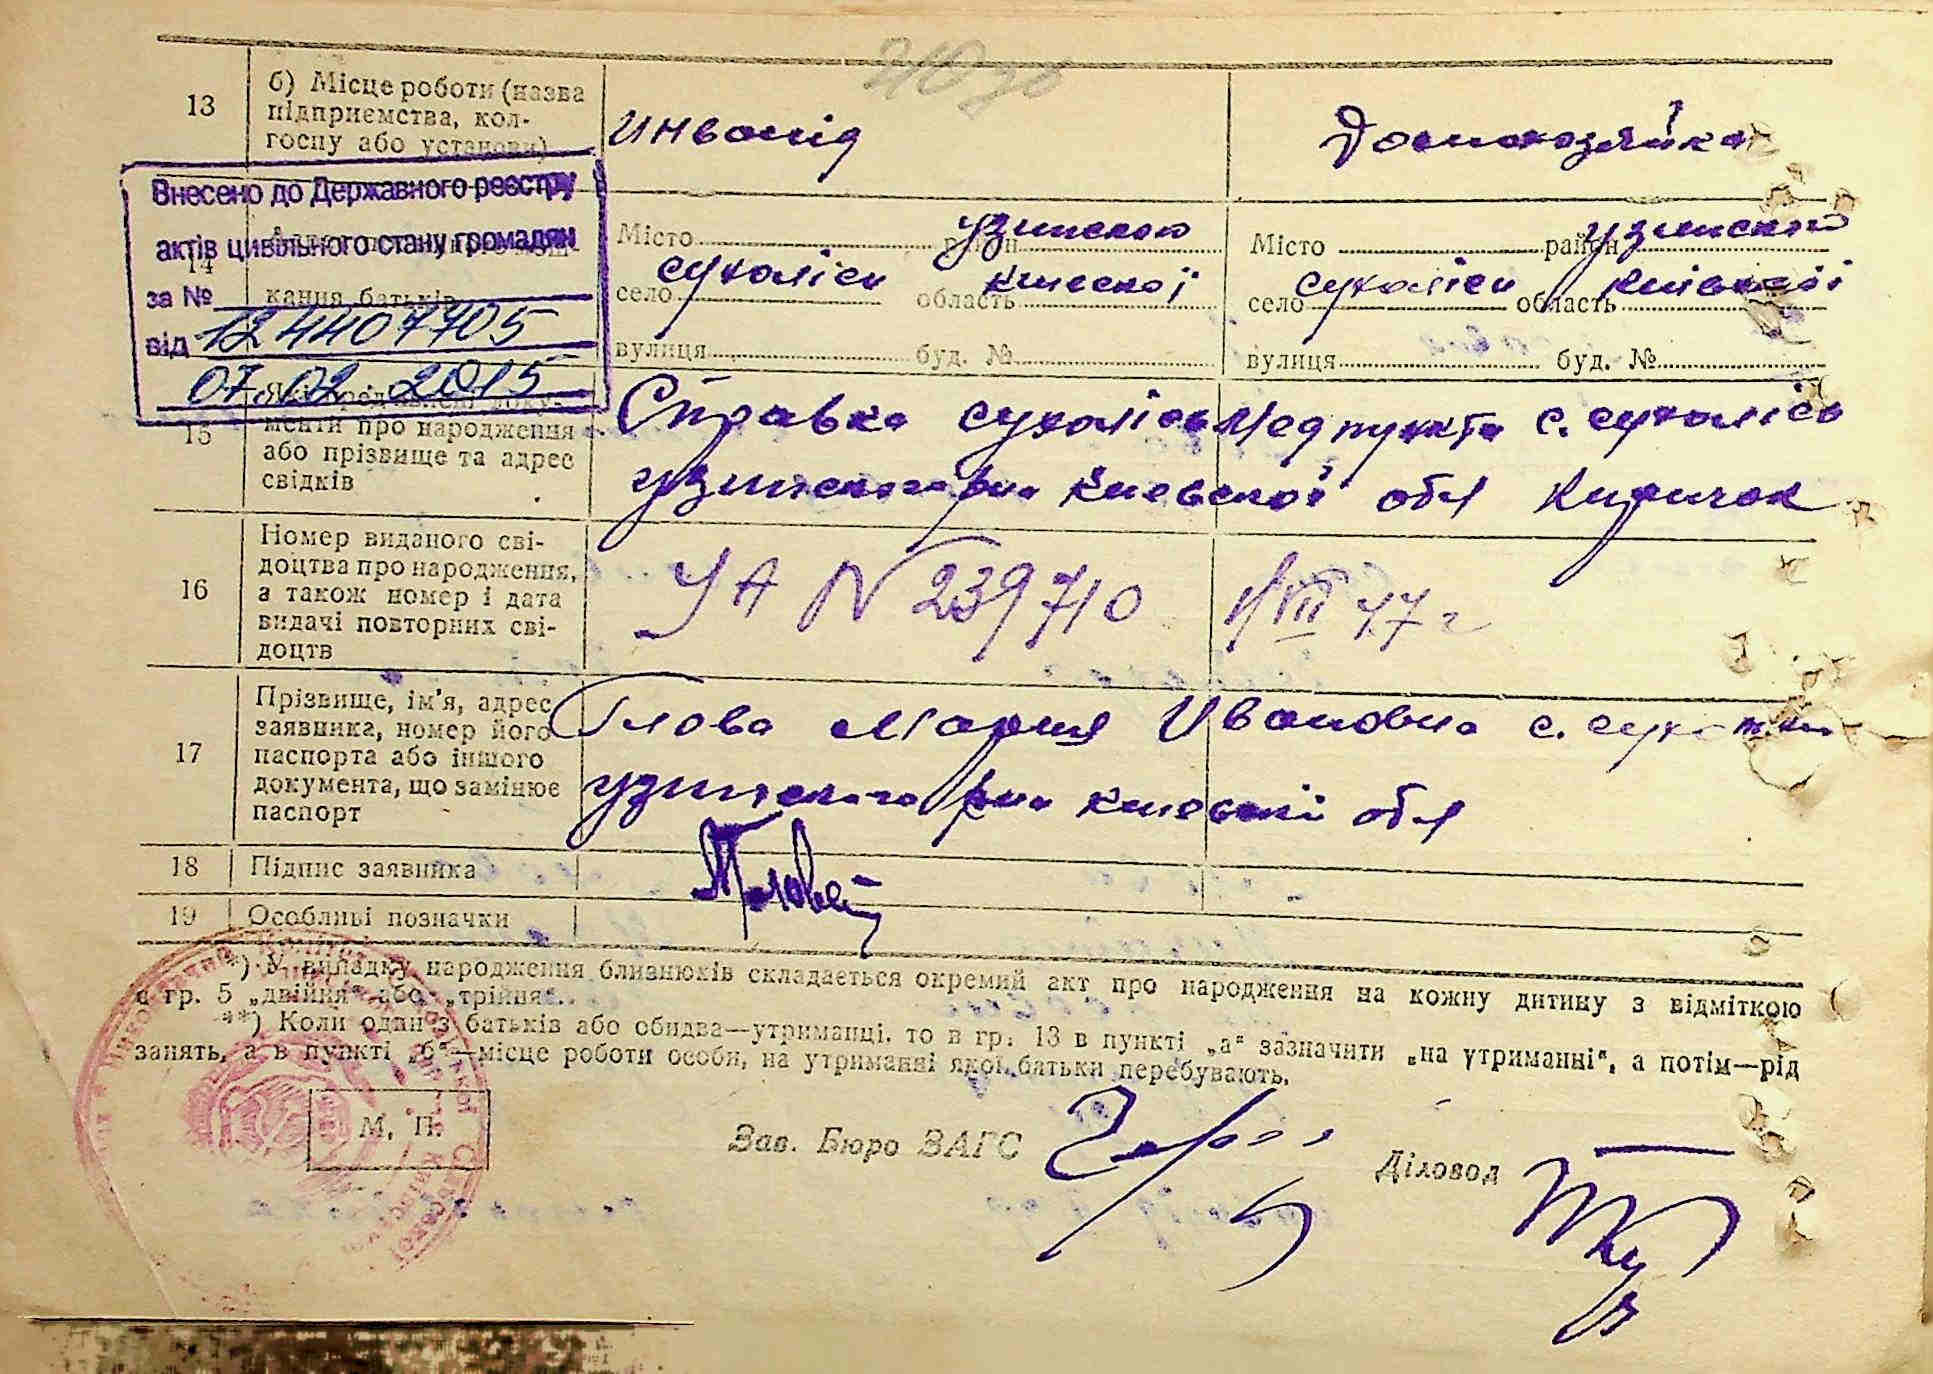 13
б) Місце роботи (назва
підприємства, кол-
госпу або установи)
инвалід
Домохозяйка
Внесено до Державного реєстру
актів цивільного стану громадян
за №
12440 7705
від
07.02.2015
14
кання батьків
Місто район узинского
село сухоліси область киевскої
вулиця буд. №
Місто район узинской
село сухоліси область київської
вулиця буд. №
15
менти про народження
або прізвище та адрес
свідків
Справка сухоліс медпункта с. сухоліси
узинского р-на киевскої обл Киричок
16
Номер виданого сві-
доцтва про народження,
а також номер і дата
видачі повторних сві-
доцтв
УА N 239710 1/VII 47 г
17
Прізвище, ім'я, адрес
заявника, номер його
паспорта або іншого
документа, що замінює
паспорт
Глова Мария Ивановна с.
узинского р-на киевскії обл
18
Підпис заявника
19
Особливі позначки
*) У випадку народження близнюків складається окремий акт про народження на кожну дитину з відміткою
в гр. 5 „двійня“ або „трійня“.
**) Коли один з батьків або обидва—утриманці, то в гр. 13 в пункті „а“ зазначити „на утриманні“, а потім—рід
занять, а в пункті „б“—місце роботи особи, на утриманні якої батьки перебувають.
М. П.
Зав. Бюро ЗАГС
Діловод